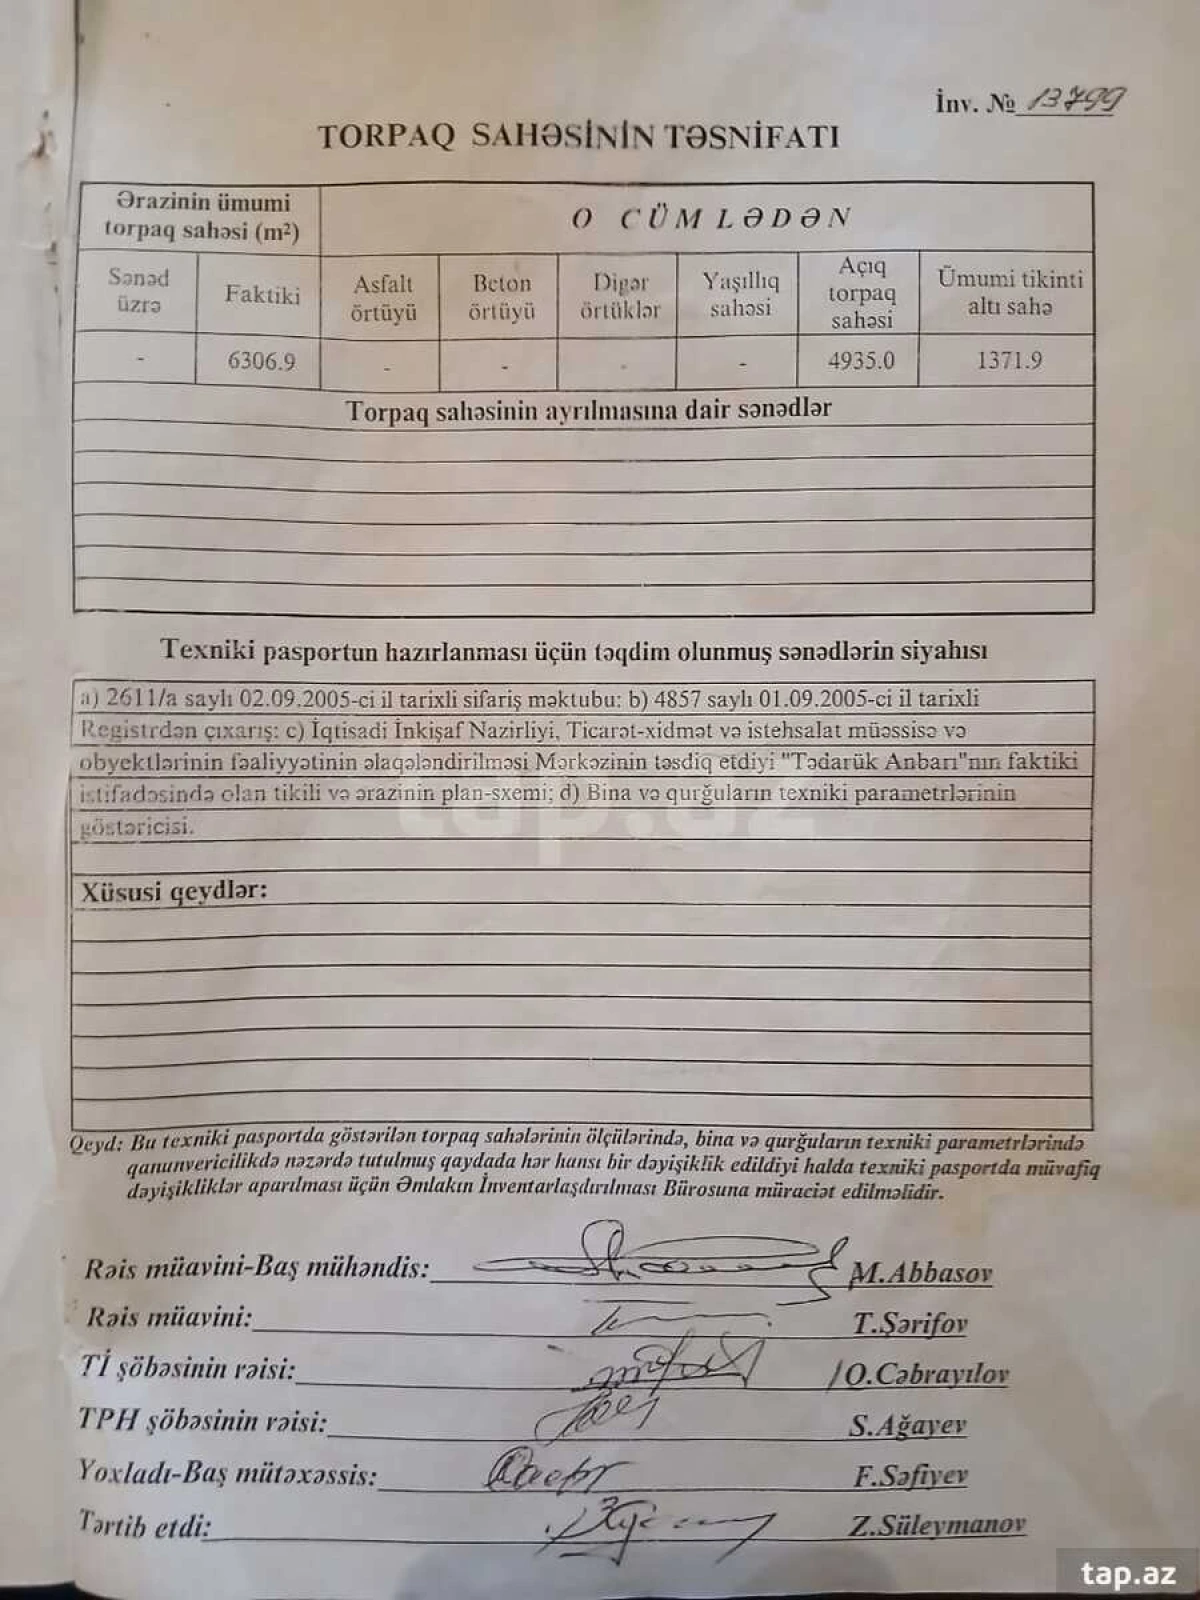 İnv. № 13799
TORPAQ SAHƏSİNİN TƏSNİFATI
Ərazinin ümumi
torpaq sahəsi (m²)
O CÜMLƏDƏN
Sənəd
üzrə
Faktiki
Asfalt
örtüyü
Beton
örtüyü
Digər
örtüklər
Yaşıllıq
sahəsi
Açıq
torpaq
sahəsi
Ümumi tikinti
altı sahə
- 6306.9 - - - - 4935.0 1371.9
Torpaq sahəsinin ayrılmasına dair sənədlər
Texniki pasportun hazırlanması üçün təqdim olunmuş sənədlərin siyahısı
a) 2611/a saylı 02.09.2005-ci il tarixli sifariş məktubu: b) 4857 saylı 01.09.2005-ci il tarixli
Registrdən çıxarış: c) İqtisadi İnkişaf Nazirliyi, Ticarət-xidmət və istehsalat müəssisə və
obyektlərinin fəaliyyətinin əlaqələndirilməsi Mərkəzinin təsdiq etdiyi "Tədarük Anbarı"nın faktiki
istifadəsində olan tikili və ərazinin plan-sxemi; d) Bina və qurğuların texniki parametrlərinin
göstəricisi.
tap.az
Xüsusi qeydlər:
Qeyd: Bu texniki pasportda göstərilən torpaq sahələrinin ölçülərində, bina və qurğuların texniki parametrlərində
qanunvericilikdə nəzərdə tutulmuş qaydada hər hansı bir dəyişiklik edildiyi halda texniki pasportda müvafiq
dəyişikliklər aparılması üçün Əmlakın İnventarlaşdırılması Bürosuna müraciət edilməlidir.
Rəis müavini-Baş mühəndis: M.Abbasov
Rəis müavini: T.Şərifov
Tİ şöbəsinin rəisi: /O.Cəbrayılov
TPH şöbəsinin rəisi: S.Ağayev
Yoxladı-Baş mütəxəssis: F.Səfiyev
Tərtib etdi: Z.Süleymanov
tap.az